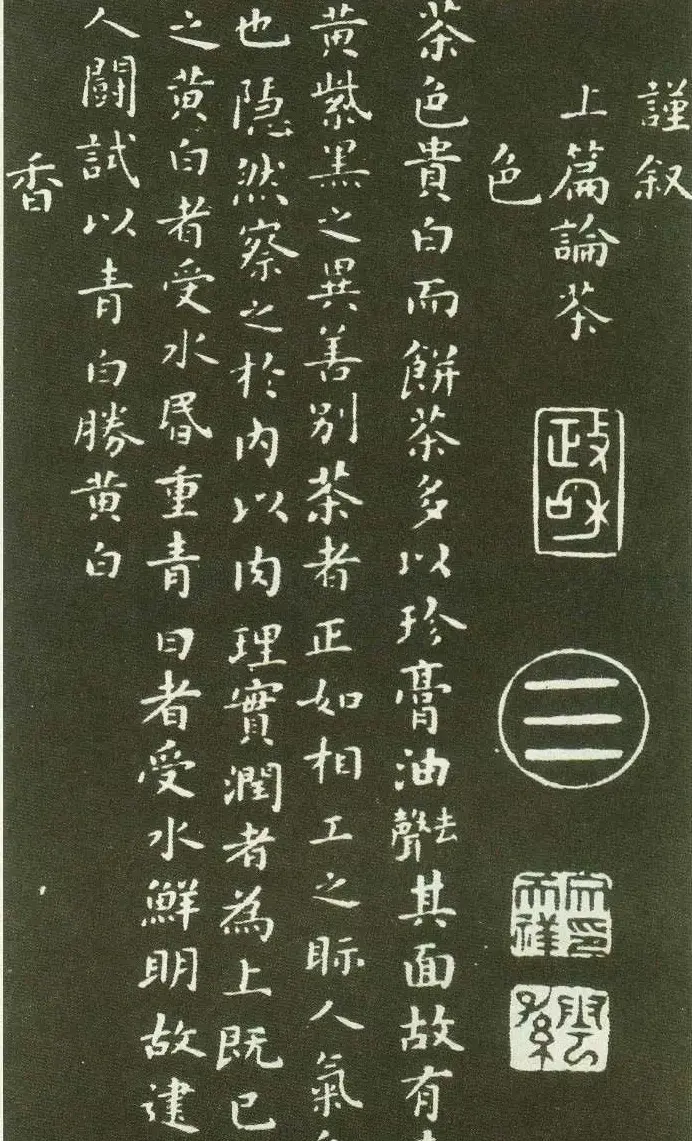 謹叙
上篇論茶
政和
色
茶色貴白而餅茶多以珍膏油去聲其面故有
黄紫黑之異善别茶者正如相工之眎人氣
也隱然察之於内以肉理實潤者為上既已
之黄白者受水昬重青白者受水鮮明故建
人鬪試以青白勝黄白
香